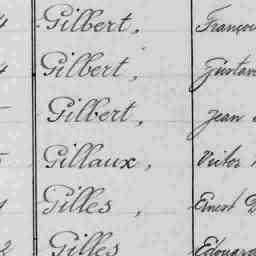 Gilbert, Franço
Gilbert, Gustav
Gilbert, Jean
Gillaux, Victor
Gilles, Ernest D
Gilles Edouard